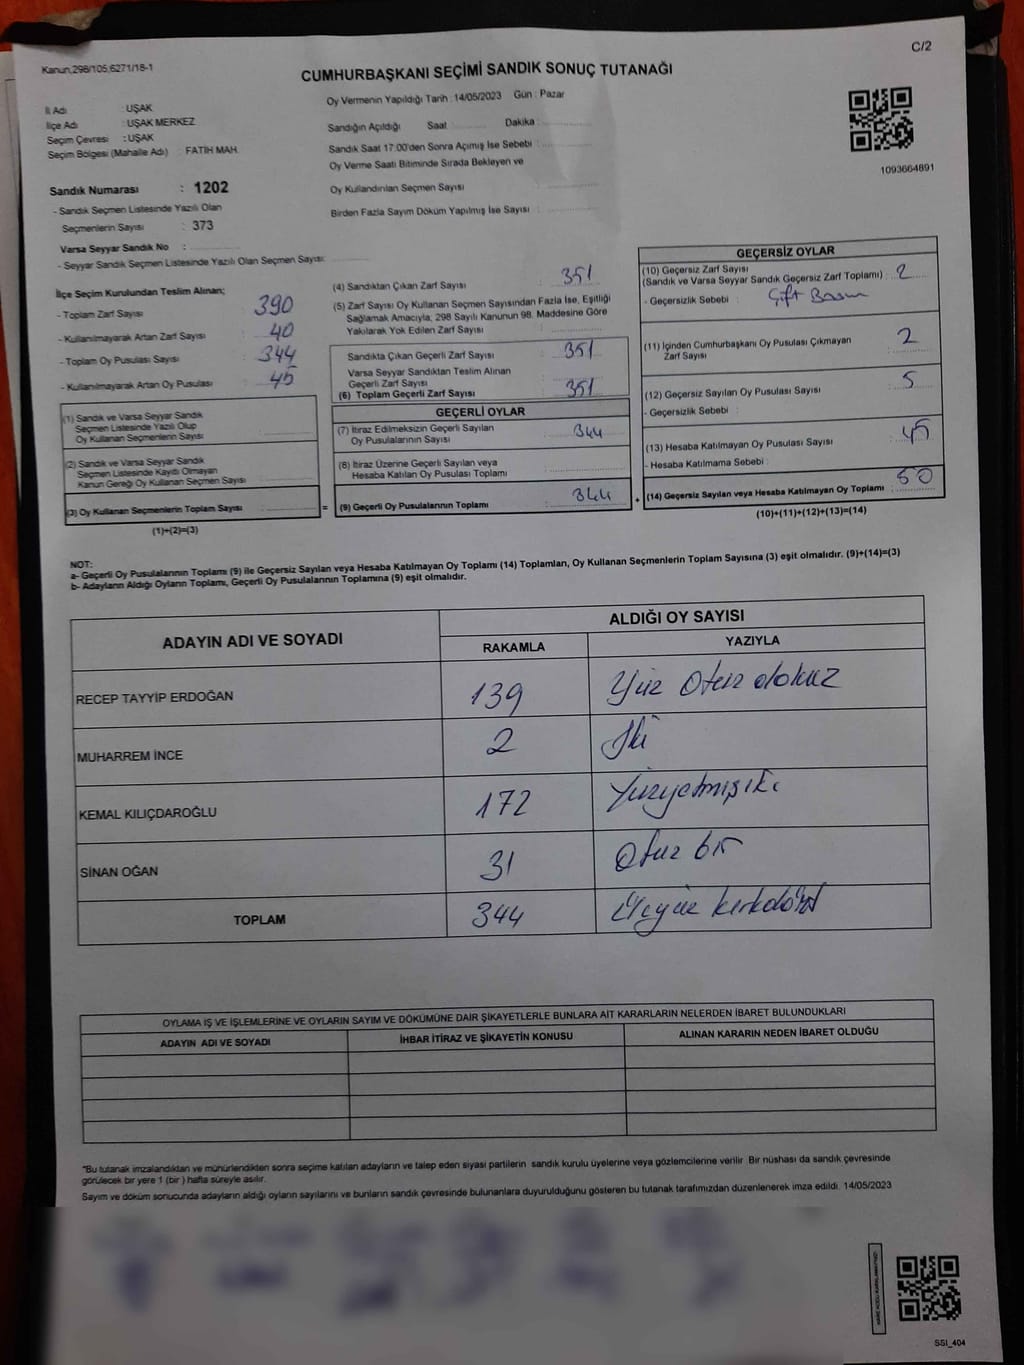 C/2
Kanun,298/105,6271/18-1
CUMHURBAŞKANI SEÇİMİ SANDIK SONUÇ TUTANAĞI
İl Adı : UŞAK
İlçe Adı : UŞAK MERKEZ
Seçim Çevresi : UŞAK
Seçim Bölgesi (Mahalle Adı) : FATİH MAH.
Sandık Numarası : 1202
- Sandık Seçmen Listesinde Yazılı Olan
Seçmenlerin Sayısı : 373
Varsa Seyyar Sandık No :
- Seyyar Sandık Seçmen Listesinde Yazılı Olan Seçmen Sayısı:
Oy Vermenin Yapıldığı Tarih : 14/05/2023 Gün : Pazar
Sandığın Açıldığı Saat: Dakika :
Sandık Saat 17:00'den Sonra Açımış İse Sebebi :
Oy Verme Saati Bitiminde Sırada Bekleyen ve
Oy Kullandırılan Seçmen Sayısı :
Birden Fazla Sayım Döküm Yapılmış İse Sayısı :
1093664891
İlçe Seçim Kurulundan Teslim Alınan;
- Toplam Zarf Sayısı : 390
- Kullanılmayarak Artan Zarf Sayısı : 40
- Toplam Oy Pusulası Sayısı : 344
- Kullanılmayarak Artan Oy Pusulası : 45
(1) Sandık ve Varsa Seyyar Sandık
Seçmen Listesinde Yazılı Olup
Oy Kullanan Seçmenlerin Sayısı
(2) Sandık ve Varsa Seyyar Sandık
Seçmen Listesinde Kaydı Olmayan
Kanun Gereği Oy Kullanan Seçmen Sayısı
(3) Oy Kullanan Seçmenlerin Toplam Sayısı :
(1)+(2)=(3)
(4) Sandıktan Çıkan Zarf Sayısı : 351
(5) Zarf Sayısı Oy Kullanan Seçmen Sayısından Fazla İse, Eşitliği
Sağlamak Amacıyla; 298 Sayılı Kanunun 98. Maddesine Göre
Yakılarak Yok Edilen Zarf Sayısı :
Sandıkta Çıkan Geçerli Zarf Sayısı : 351
Varsa Seyyar Sandıktan Teslim Alınan
Geçerli Zarf Sayısı :
(6) Toplam Geçerli Zarf Sayısı : 351
GEÇERLİ OYLAR
(7) İtiraz Edilmeksizin Geçerli Sayılan
Oy Pusulalarının Sayısı : 344
(8) İtiraz Üzerine Geçerli Sayılan veya
Hesaba Katılan Oy Pusulası Toplamı :
= (9) Geçerli Oy Pusulalarının Toplamı : 344
GEÇERSİZ OYLAR
(10) Geçersiz Zarf Sayısı
(Sandık ve Varsa Seyyar Sandık Geçersiz Zarf Toplamı) : 2
- Geçersizlik Sebebi : Çift Basım
(11) İçinden Cumhurbaşkanı Oy Pusulası Çıkmayan
Zarf Sayısı : 2
(12) Geçersiz Sayılan Oy Pusulası Sayısı : 5
- Geçersizlik Sebebi :
(13) Hesaba Katılmayan Oy Pusulası Sayısı : 45
- Hesaba Katılmama Sebebi :
+ (14) Geçersiz Sayılan veya Hesaba Katılmayan Oy Toplamı : 50
(10)+(11)+(12)+(13)=(14)
NOT:
a- Geçerli Oy Pusulalarının Toplamı (9) ile Geçersiz Sayılan veya Hesaba Katılmayan Oy Toplamı (14) Toplamları, Oy Kullanan Seçmenlerin Toplam Sayısına (3) eşit olmalıdır. (9)+(14)=(3)
b- Adayların Aldığı Oyların Toplamı, Geçerli Oy Pusulalarının Toplamına (9) eşit olmalıdır.
ADAYIN ADI VE SOYADI
ALDIĞI OY SAYISI
RAKAMLA YAZIYLA
RECEP TAYYİP ERDOĞAN 139 Yüz Otuz dokuz
MUHARREM İNCE 2 İki
KEMAL KILIÇDAROĞLU 172 Yüzyetmişiki
SİNAN OĞAN 31 Otuz bir
TOPLAM 344 Üçyüz kırkdört
OYLAMA İŞ VE İŞLEMLERİNE VE OYLARIN SAYIM VE DÖKÜMÜNE DAİR ŞİKAYETLERLE BUNLARA AİT KARARLARIN NELERDEN İBARET BULUNDUKLARI
ADAYIN ADI VE SOYADI İHBAR İTİRAZ VE ŞİKAYETİN KONUSU ALINAN KARARIN NEDEN İBARET OLDUĞU
*Bu tutanak imzalandıktan ve mühürlendikten sonra seçime katılan adayların ve talep eden siyasi partilerin sandık kurulu üyelerine veya gözlemcilerine verilir. Bir nüshası da sandık çevresinde
görülecek bir yere 1 (bir ) hafta süreyle asılır.
Sayım ve döküm sonucunda adayların aldığı oyların sayılarını ve bunların sandık çevresinde bulunanlara duyurulduğunu gösteren bu tutanak tarafımızdan düzenlenerek imza edildi. 14/05/2023
SSI_404